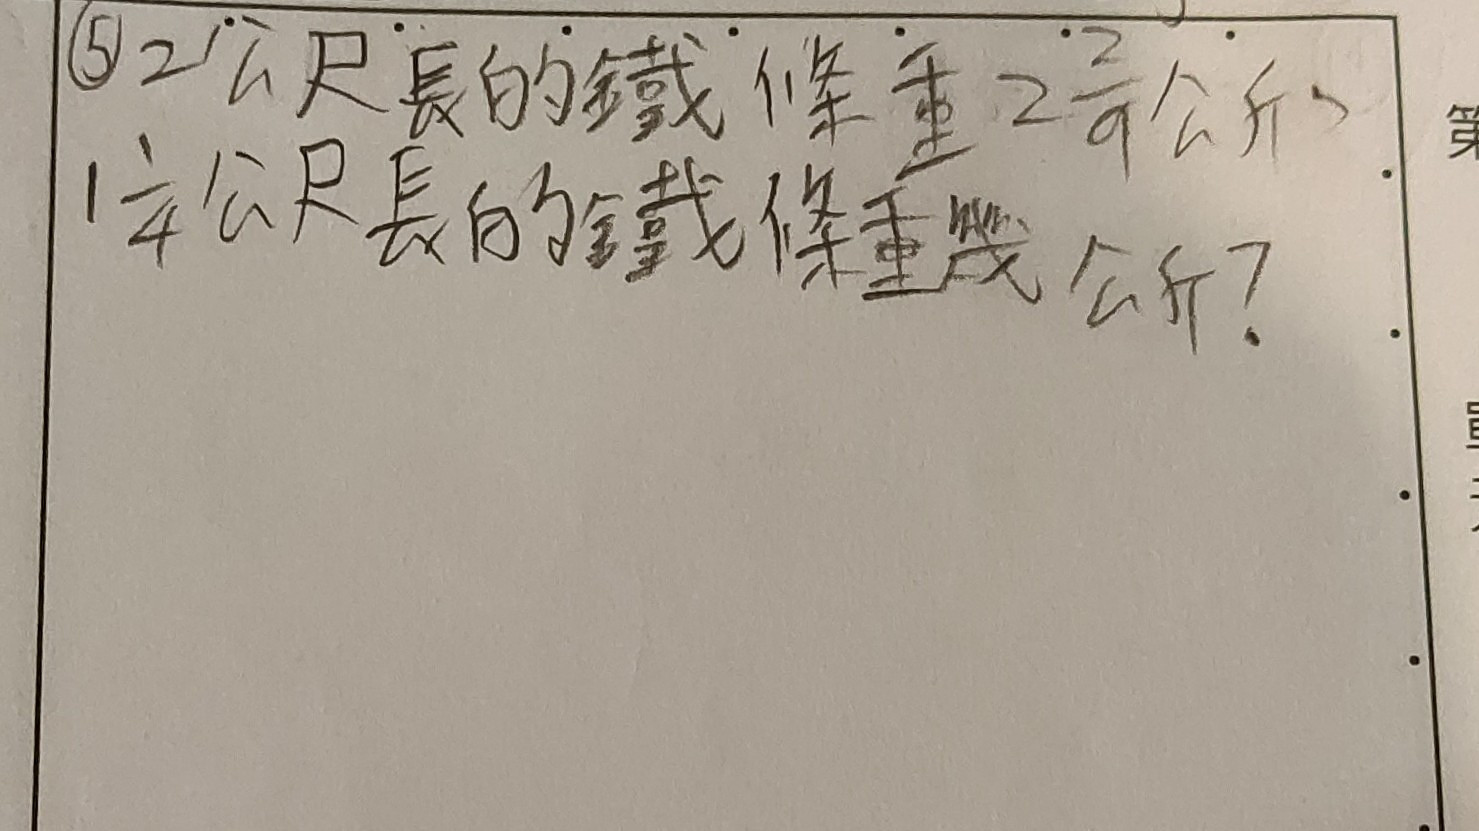 ⑤2公尺長的鐵條重2 2/9公斤、
1 1/4公尺長的鐵條重幾公斤?
第